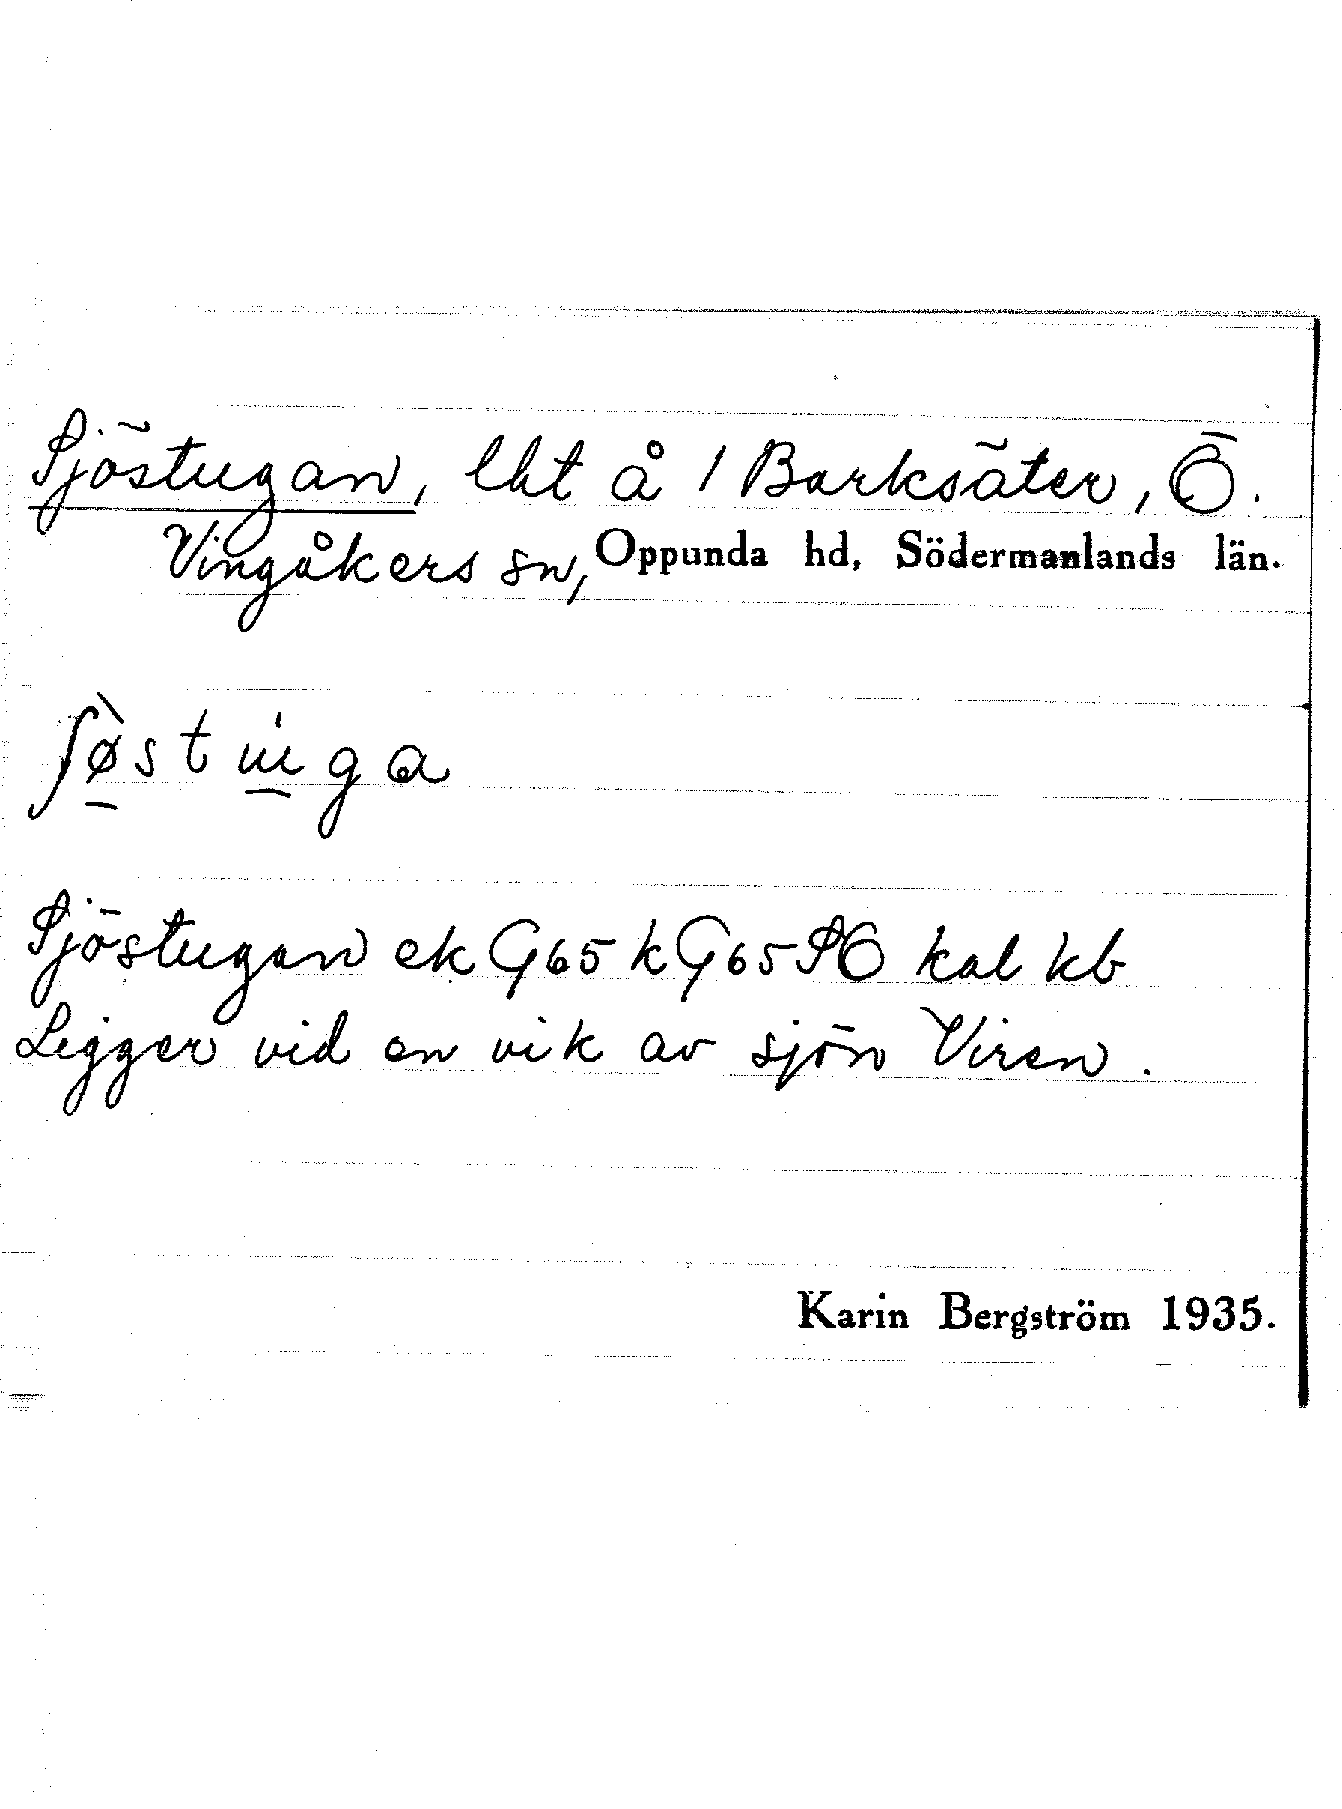 Sjöstugan, lht å 1 Barksäter, Ö.
Vingåkers sn, Oppunda hd, Södermanlands län.
ʃø̀stu̇ga
Sjöstugan ek G65 k G65 SO kal kb
Ligger vid en vik av sjön Viren.
Karin Bergström 1935.